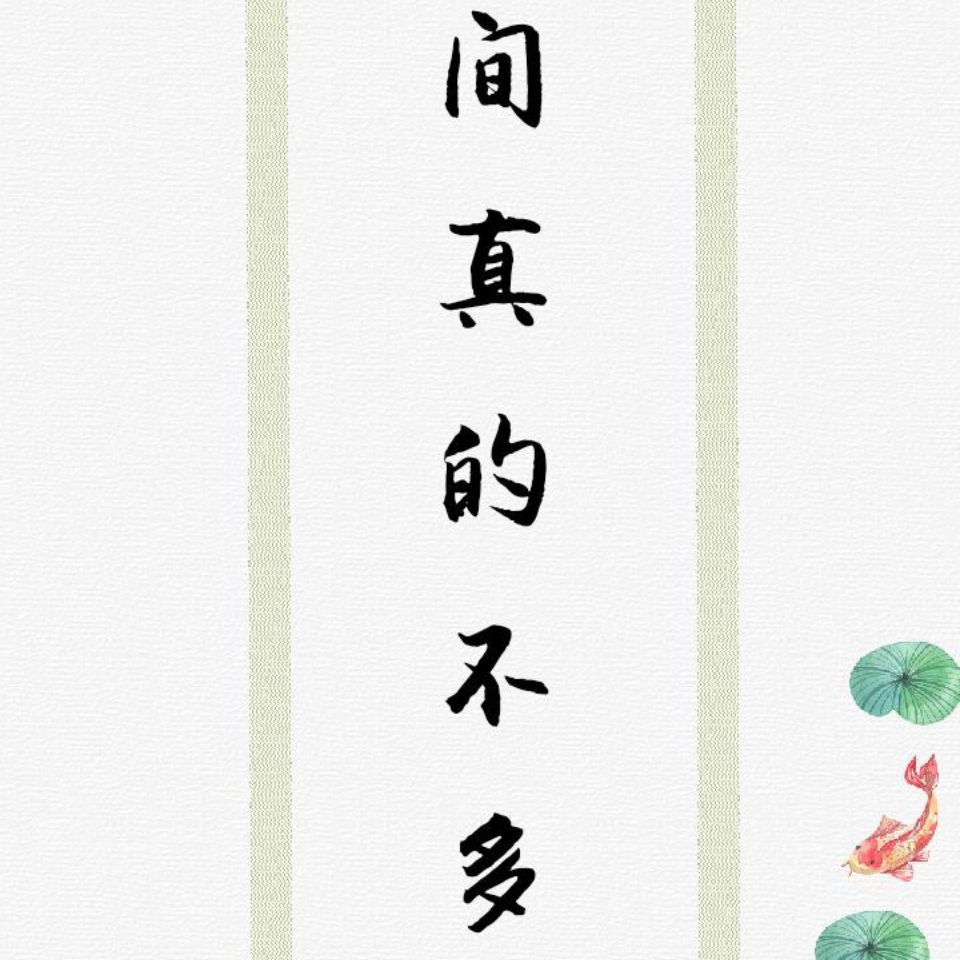 间真的不多